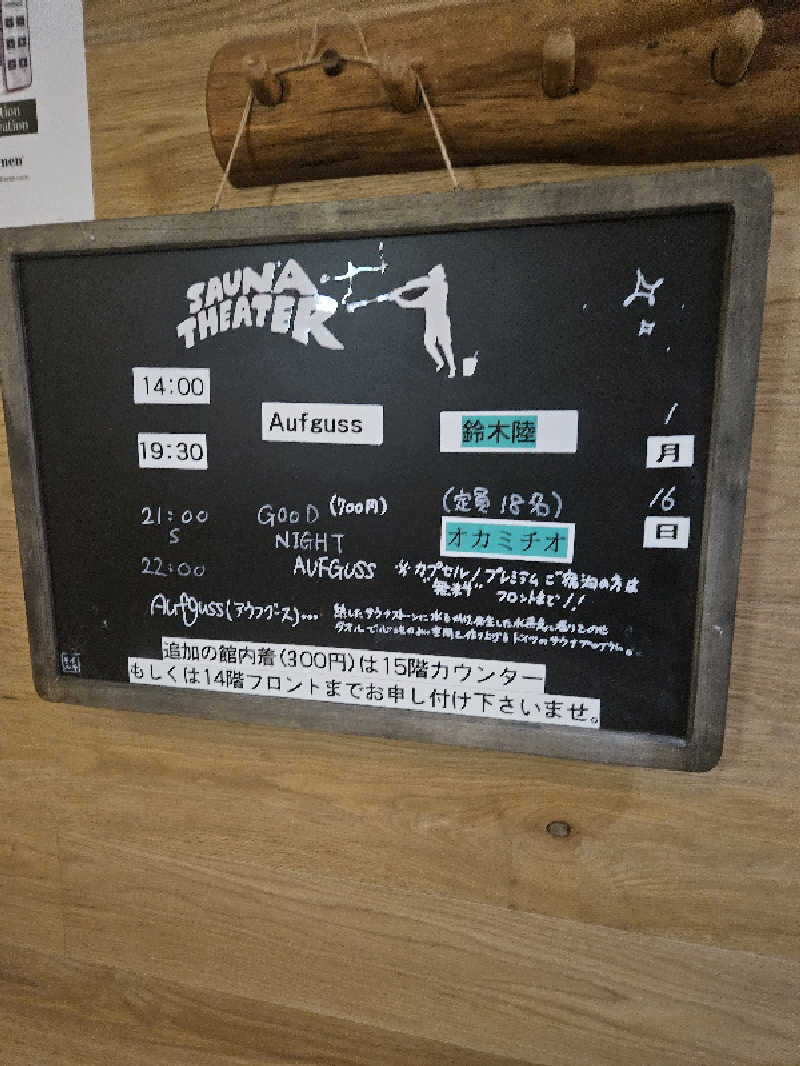 SAUNA
THEATER
14:00
Aufguss 鈴木陸
19:30
1
月
16
日
21:00 GOOD (700円) (定員18名)
S NIGHT オカミチオ
22:00 AUFGUSS ※カプセル/プレミアムご宿泊の方は
"無料" フロントまで!!
Aufguss(アウフグース)... 熱したサウナストーンに水をかけ発生した水蒸気
タオルで
追加の館内着(300円)は15階カウンター
もしくは14階フロントまでお申し付け下さいませ。